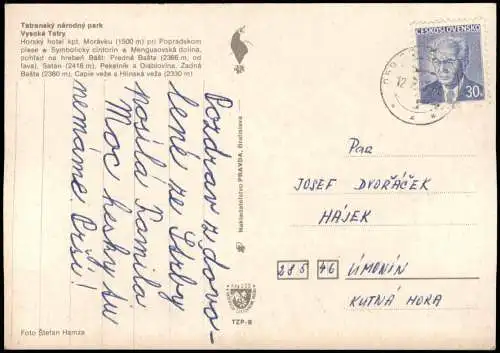 Tatranský národný park
Vysoké Tatry
Horský hotel kpt. Morávku (1500 m) pri Popradskom
plese • Symbolický cintorín • Mengusovská dolina,
pohľad na hrebeň Bášt: Predná Bašta (2366 m, od
ľava), Satan (2416 m), Pekelník a Diablovina, Zadná
Bašta (2380 m), Capie veže a Hlinská veža (2330 m)
Pozdrav z dovo-
lené ze Štrby
posílá Kamila
Moc hezky si
nemáme. Prší!
Foto Štefan Hamza
Nakladateľstvo PRAVDA, Bratislava
TZP-B
ČESKOSLOVENSKO
30h
12
PAR
JOSEF DVOŘÁČEK
HÁJEK
285 46 ÚMONÍN
KUTNÁ HORA